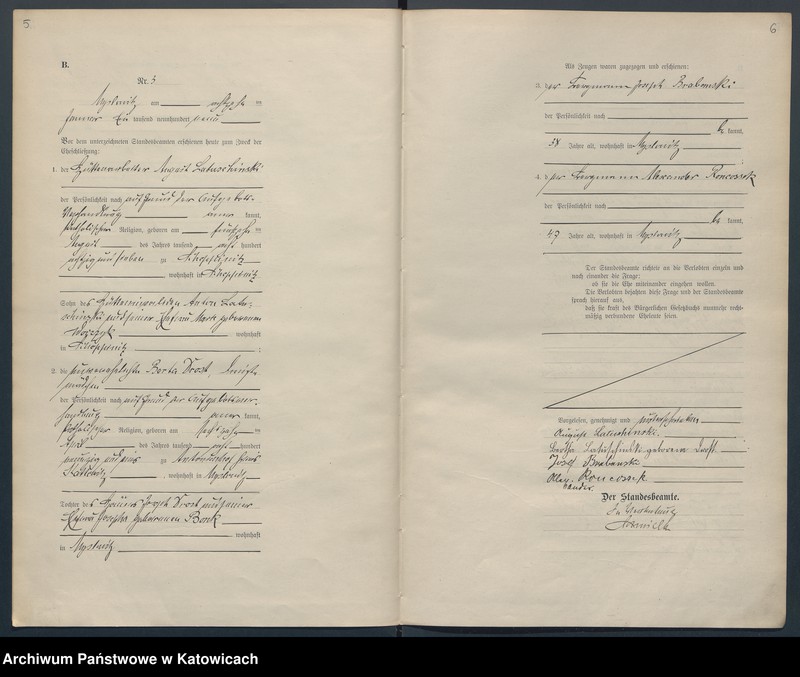 5
B.
Nr. 3
Myslowitz am
Januar Ein tausend neunhundert
Vor dem unterzeichneten Standesbeamten erschienen heute zum Zweck der
Eheschließung:
1. der Hüttenarbeiter August Latuschinski
der Persönlichkeit nach auf Grund der Aufgebots-
Verhandlung kannt,
katholischer Religion, geboren am
August des Jahres tausend acht hundert
achtzig und sieben zu Schoppinitz
wohnhaft in Schoppinitz
Sohn des Hütteninvaliden Anton Latu-
schinski und seiner Ehefrau Marie geborenen
wohnhaft
in Schoppinitz ;
2. die unverehelichte Berta Drost, Dienst-
mädchen
der Persönlichkeit nach auf Grund der Aufgebotsver-
handlung kannt,
katholischer Religion, geboren am
April des Jahres tausend acht hundert
neunzig und eins zu
Kattowitz, wohnhaft in Myslowitz
Tochter des Häuers Joseph Drost und seiner
Ehefrau Josepha geborenen Bonk
wohnhaft
in Myslowitz
6
Als Zeugen waren zugezogen und erschienen:
3. der Bergmann Joseph Brabanski
der Persönlichkeit nach
be kannt,
38 Jahre alt, wohnhaft in Myslowitz
4. der Bergmann Alexander Roncossek
der Persönlichkeit nach
be kannt,
47 Jahre alt, wohnhaft in Myslowitz
Der Standesbeamte richtete an die Verlobten einzeln und
nach einander die Frage:
ob sie die Ehe miteinander eingehen wollen.
Die Verlobten bejahten diese Frage und der Standesbeamte
sprach hierauf aus,
daß sie kraft des Bürgerlichen Gesetzbuchs nunmehr recht-
mäßig verbundene Eheleute seien.
Vorgelesen, genehmigt und unterschrieben
August Latuschinski
Bertha Latuschinski geborene Drost
Josef Brabanski
Alex Roncossek
ander
Der Standesbeamte.
In Vertretung
Archiwum Państwowe w Katowicach